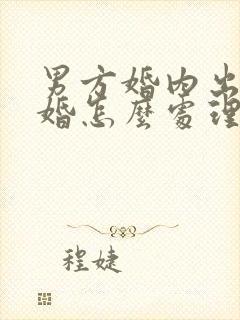 男方婚内出
婚怎麼處理
程婕